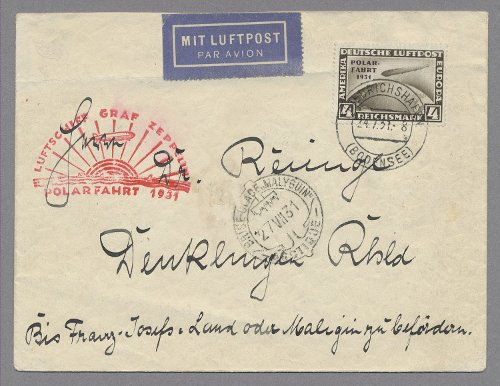 MIT LUFTPOST
PAR AVION
AMERIKA DEUTSCHE LUFTPOST EUROPA
POLAR-
FAHRT
1931
4 REICHSMARK 4
FRIEDRICHSHAFEN
24.7.31. 8
(BODENSEE)
LUFTSCHIFF GRAF ZEPPELIN
POLARFAHRT 1931
Herrn
Dr. Reinige
MALYGUIN
27 VII 31
Denklingen Rhld
Bis Franz-Josefs-Land oder Maligin zu befördern.